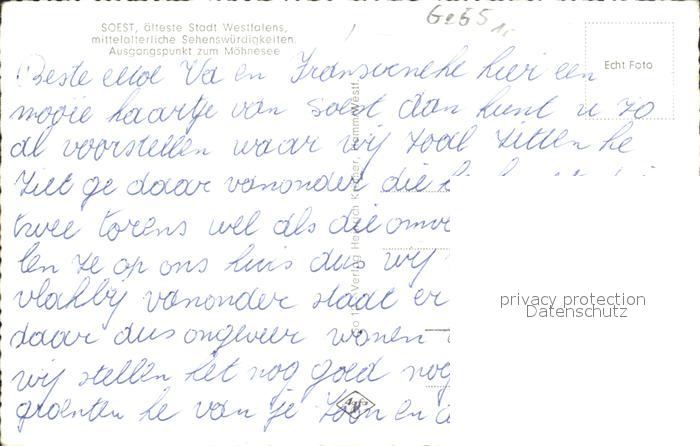 Ge65
SOEST, älteste Stadt Westfalens,
mittelalterliche Sehenswürdigkeiten.
Ausgangspunkt zum Möhnesee
Echt Foto
Beste Va en hier een
mooie kaartje van Soest dan kunt u zo
al voorstellen waar wij zoal zitten he
ziet ge daar vanonder die
twee torens wel als die omve
len ze op ons huis dus wij
vlakbij vanonder staat er
daar dus ongeveer wonen
wij stellen het nog goed nog
groenten he van je zoon en
Verlag Heinrich Hamm/Westf.
Agfa
privacy protection
Datenschutz